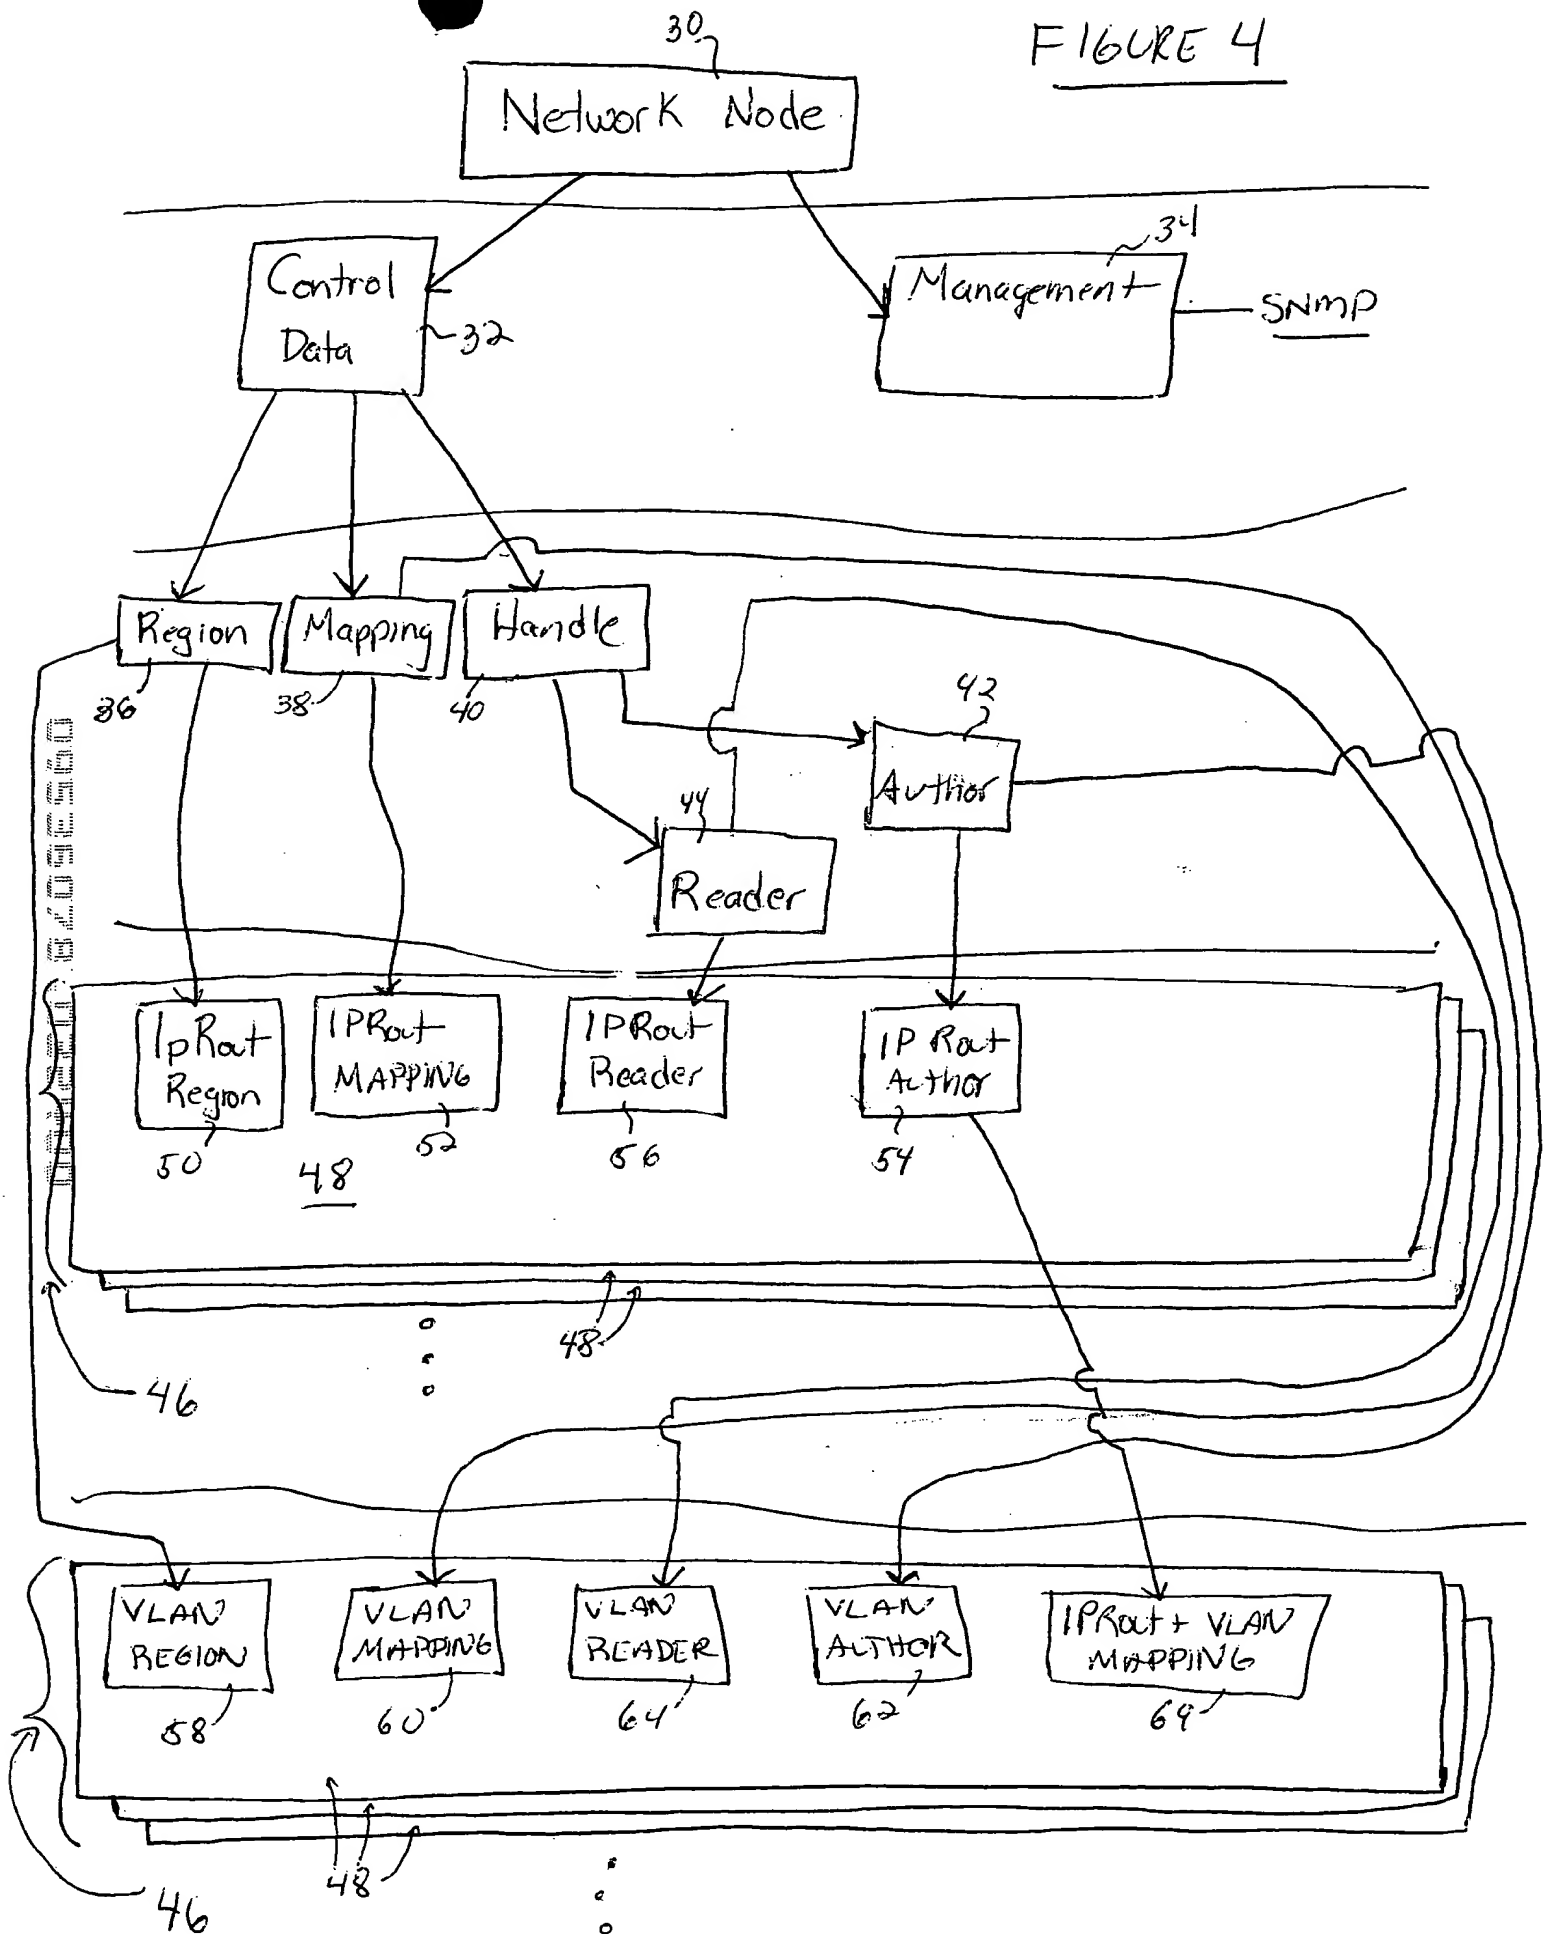 FIGURE 4
30
Network Node
34
Control
Data
32
Management
SNMP
Region
Mapping
Handle
36
38
40
42
Author
44
Reader
IpRout
Region
IPRout
MAPPING
IPRout
Reader
IP Rout
Author
50
52
56
54
48
48
46
VLAN
REGION
VLAN
MAPPING
VLAN
READER
VLAN
AUTHOR
IPRout + VLAN
MAPPING
58
60
64
62
69
48
46